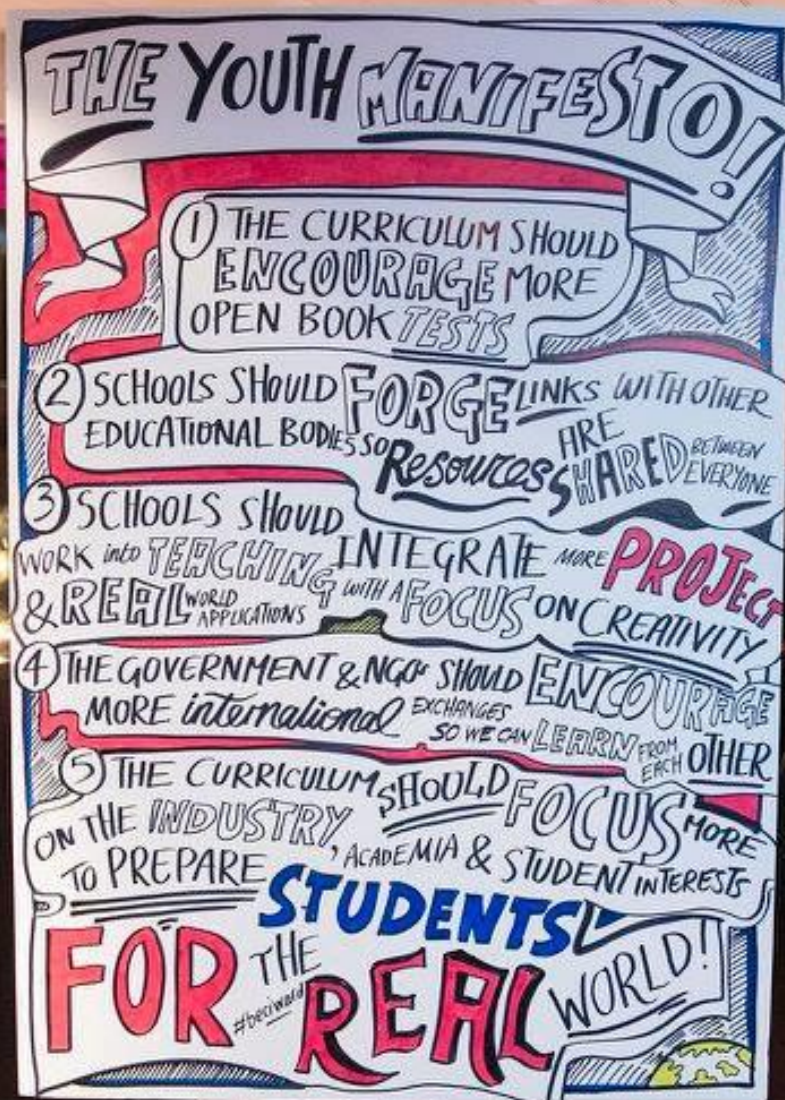 THE YOUTH MANIFESTO!
1 THE CURRICULUM SHOULD
ENCOURAGE MORE
OPEN BOOK TESTS
2 SCHOOLS SHOULD FORGE LINKS WITH OTHER
EDUCATIONAL BODIES SO Resources ARE SHARED BETWEEN EVERYONE
3 SCHOOLS SHOULD INTEGRATE MORE PROJECT
WORK into TEACHING WITH A FOCUS ON CREATIVITY
& REAL WORLD APPLICATIONS
4 THE GOVERNMENT & NGOs SHOULD ENCOURAGE
MORE international EXCHANGES SO WE CAN LEARN FROM EACH OTHER
5 THE CURRICULUM SHOULD FOCUS MORE
ON THE INDUSTRY, ACADEMIA & STUDENT INTERESTS
TO PREPARE STUDENTS
FOR THE REAL WORLD!